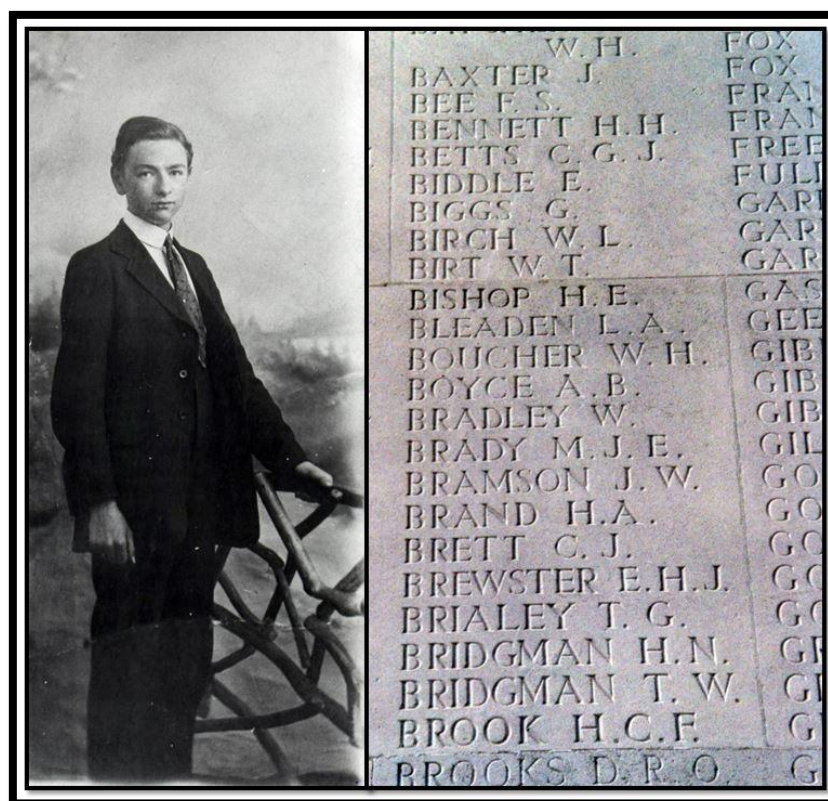 W. H.
BAXTER J.
BEE F. S.
BENNETT H. H.
BETTS C. G. J.
BIDDLE E.
BIGGS G.
BIRCH W. L.
BIRT W. T.
BISHOP H. E.
BLEADEN L. A.
BOUCHER W. H.
BOYCE A. B.
BRADLEY W.
BRADY M. J. E.
BRAMSON J. W.
BRAND H. A.
BRETT C. J.
BREWSTER E. H. J.
BRIALEY T. G.
BRIDGMAN H. N.
BRIDGMAN T. W.
BROOK H. C. F.
BROOKS D. R. O
FOX
FOX
FRAN
FRAN
FREE
FULL
GAR
GAR
GAR
GAS
GEE
GIB
GIB
GIB
GIL
GO
GO
GO
GO
GO